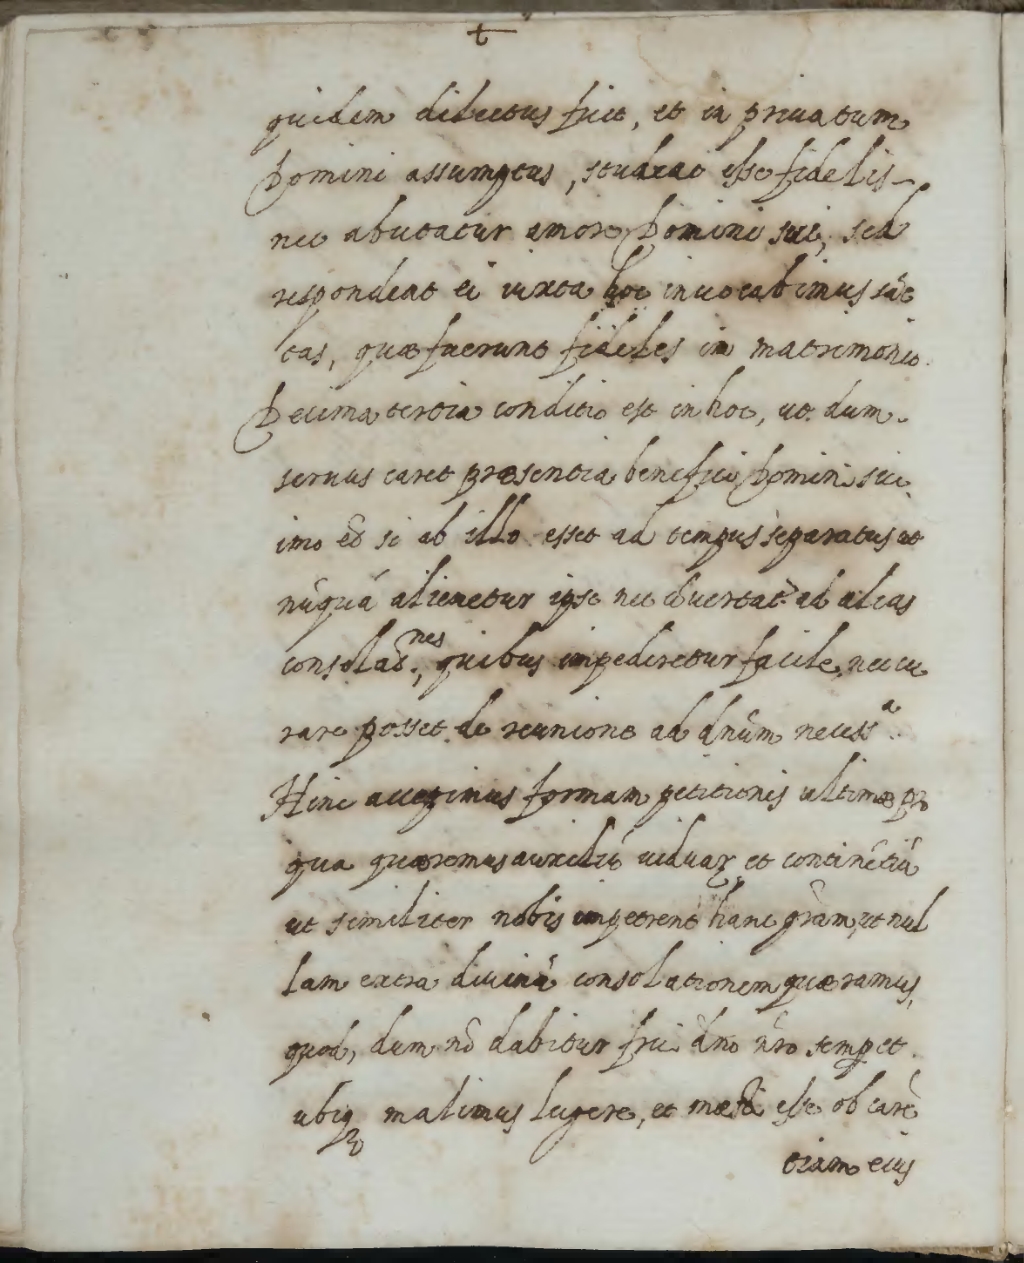 t
quidem dilectus fuit, et in priuatum
Domini assumptus, studeat esse fidelis
nec abutatur amore Domini sui, sed
respondeat ei iuxta hoc inuocabimus sāc
tas, quæ fuerunt fideles in matrimonio.
Decima tertia conditio est in hoc, ut dum
seruus caret præsentia benefici Domini sui
imo et si ab illo esset ad tempus separatus ut
nūquā alienetur ipse nec diuertat ad alias
consolaōnes, quibus impediretur facile, nec cu
rare posset de reunione ad dnūm necessa.
Hinc accepimus formam petitionis ultimæ pro
qua quæremus auxiliū uiduarꝝ et continētiū
ut similiter nobis impetrent hanc grām, ut nul
lam extra diuinā consolationem quæramus,
quod, dum nō dabitur frui dno nro semp et
ubiqꝫ malimus lugere, et mæsti esse ob carē
tiam eius